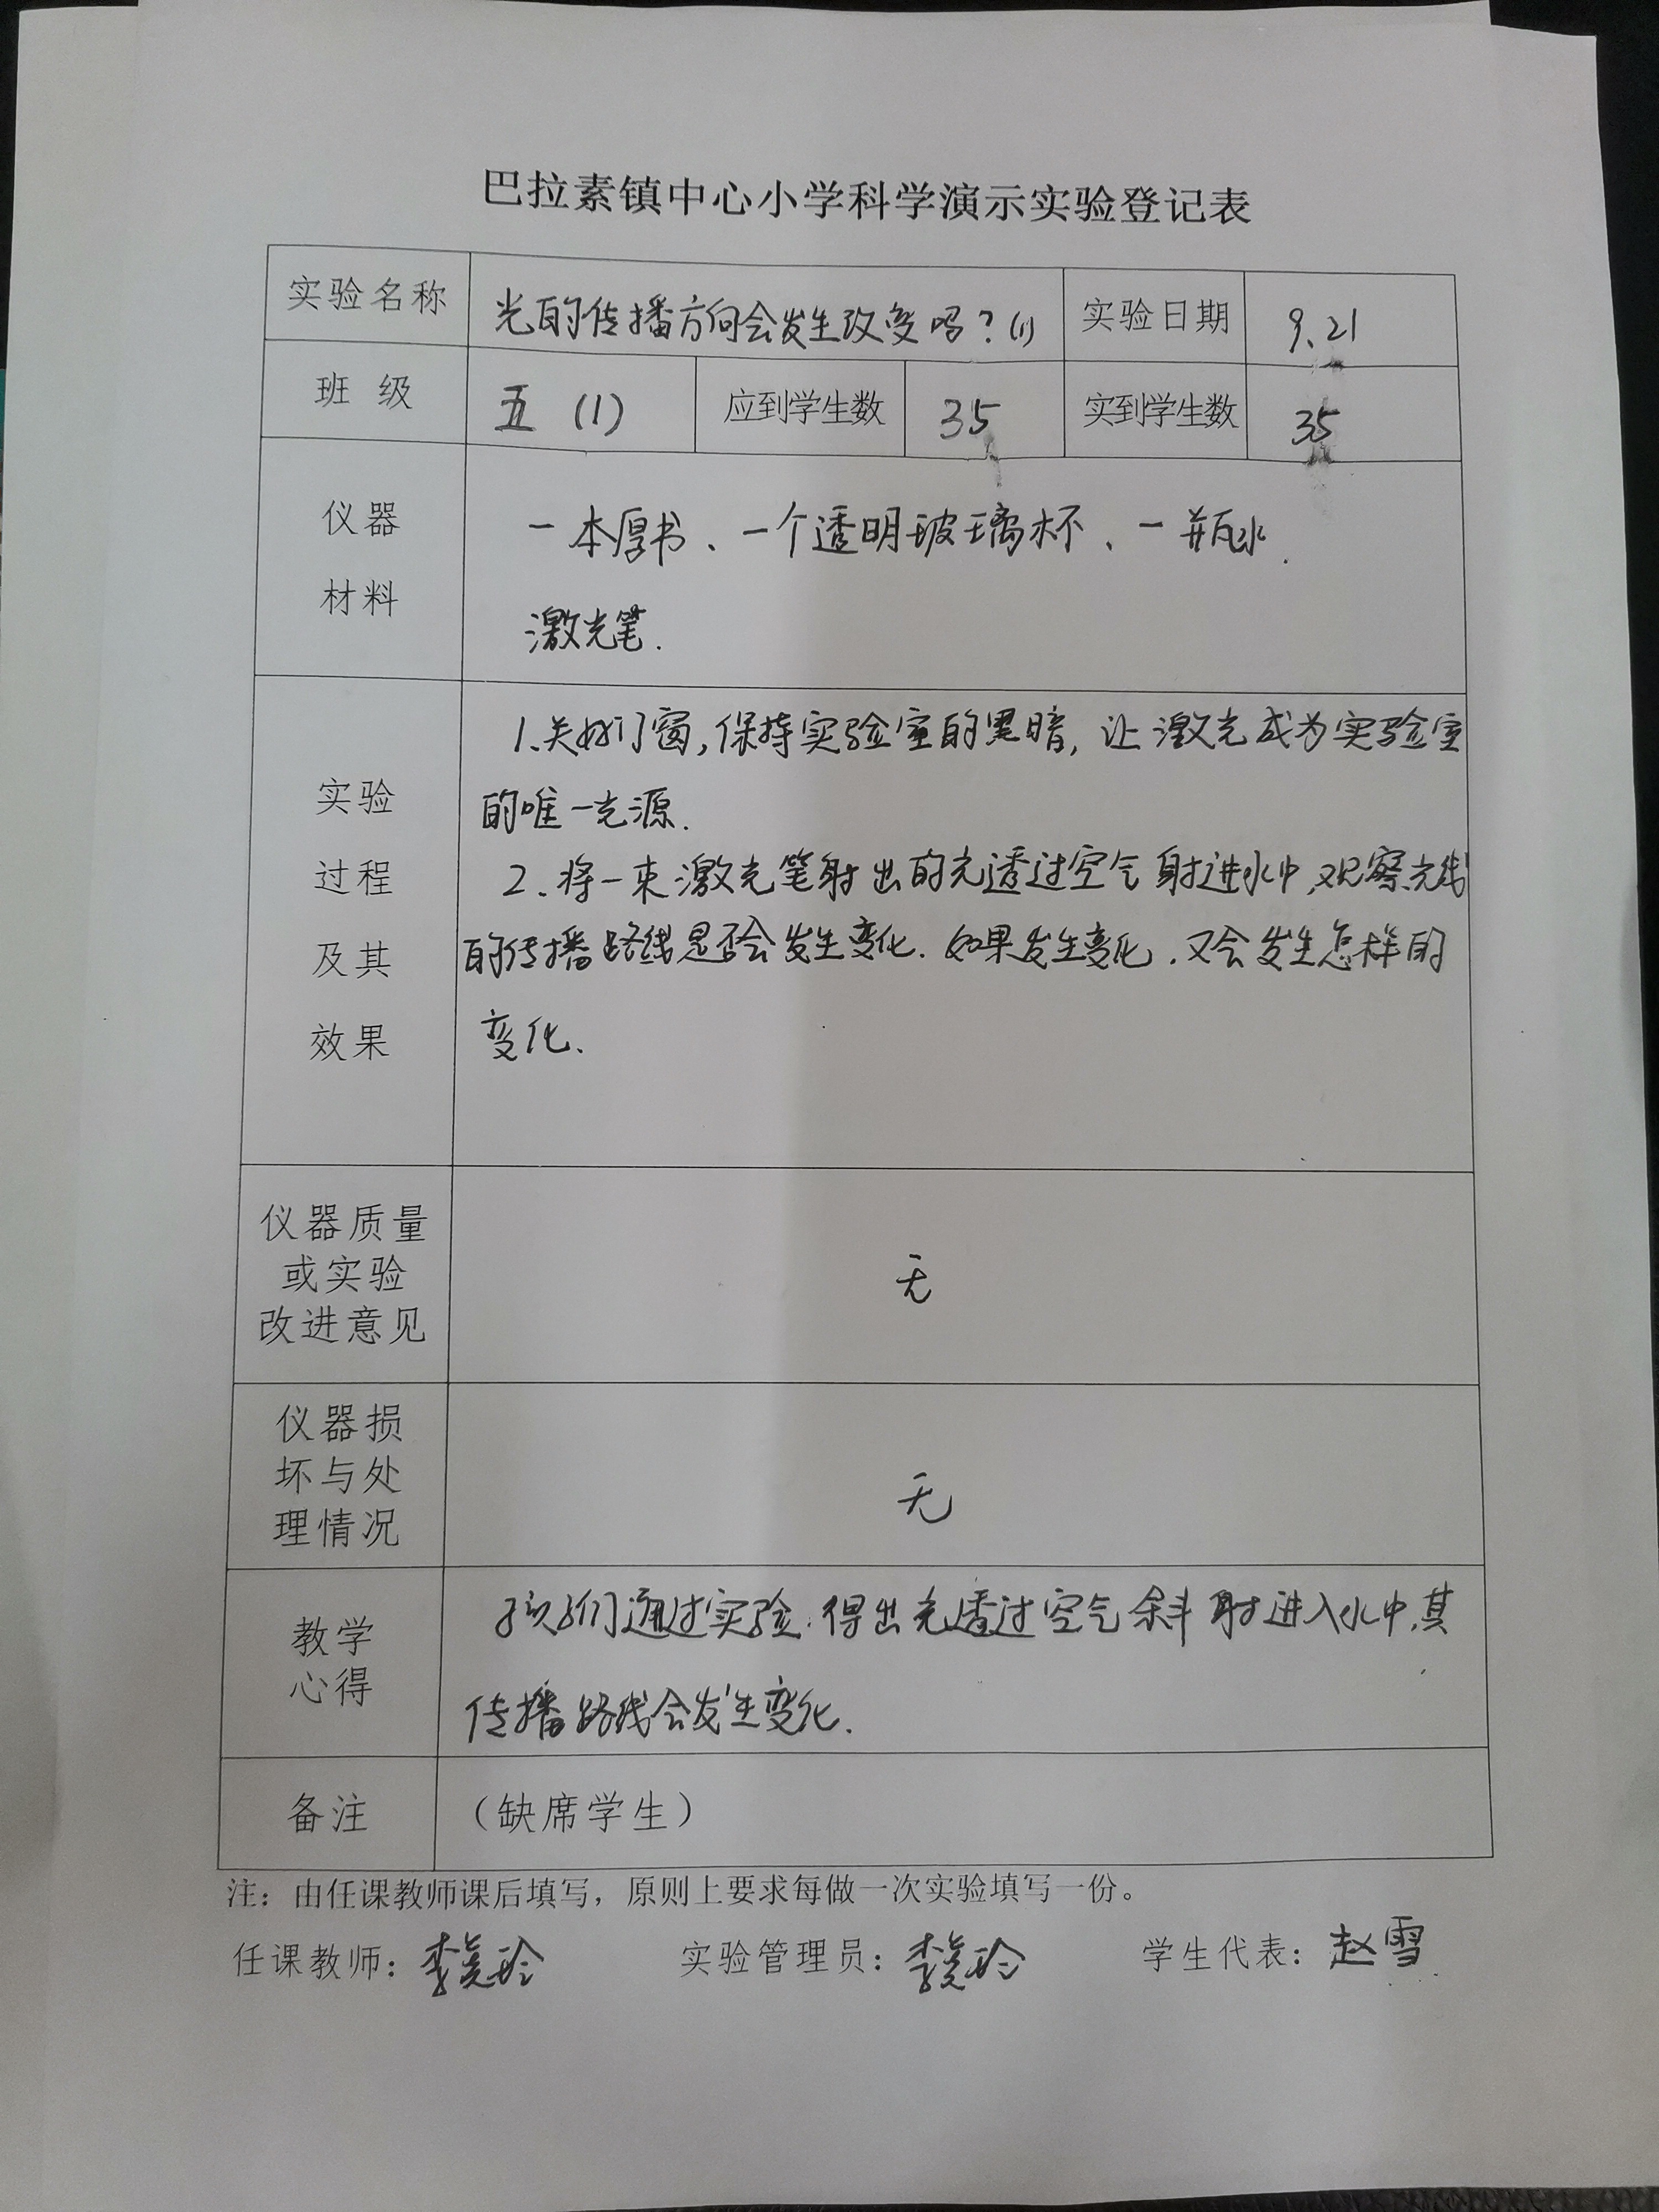 巴拉素镇中心小学科学演示实验登记表
实验名称 光的传播方向会发生改变吗？(1) 实验日期 9.21
班 级 五 (1) 应到学生数 35 实到学生数 35
仪器
材料
一本厚书、一个透明玻璃杯、一瓶水.
激光笔.
实验
过程
及其
效果
1.关好门窗,保持实验室的黑暗,让激光成为实验室
的唯一光源.
2.将一束激光笔射出的光透过空气射进水中,观察光线
的传播路线是否会发生变化.如果发生变化.又会发生怎样的
变化.
仪器质量
或实验
改进意见
无
仪器损
坏与处
理情况
无
教学
心得
孩子们通过实验.得出光透过空气斜射进入水中.其
传播路线会发生变化.
备注 （缺席学生）
注：由任课教师课后填写，原则上要求每做一次实验填写一份。
任课教师： 实验管理员： 学生代表：赵雪